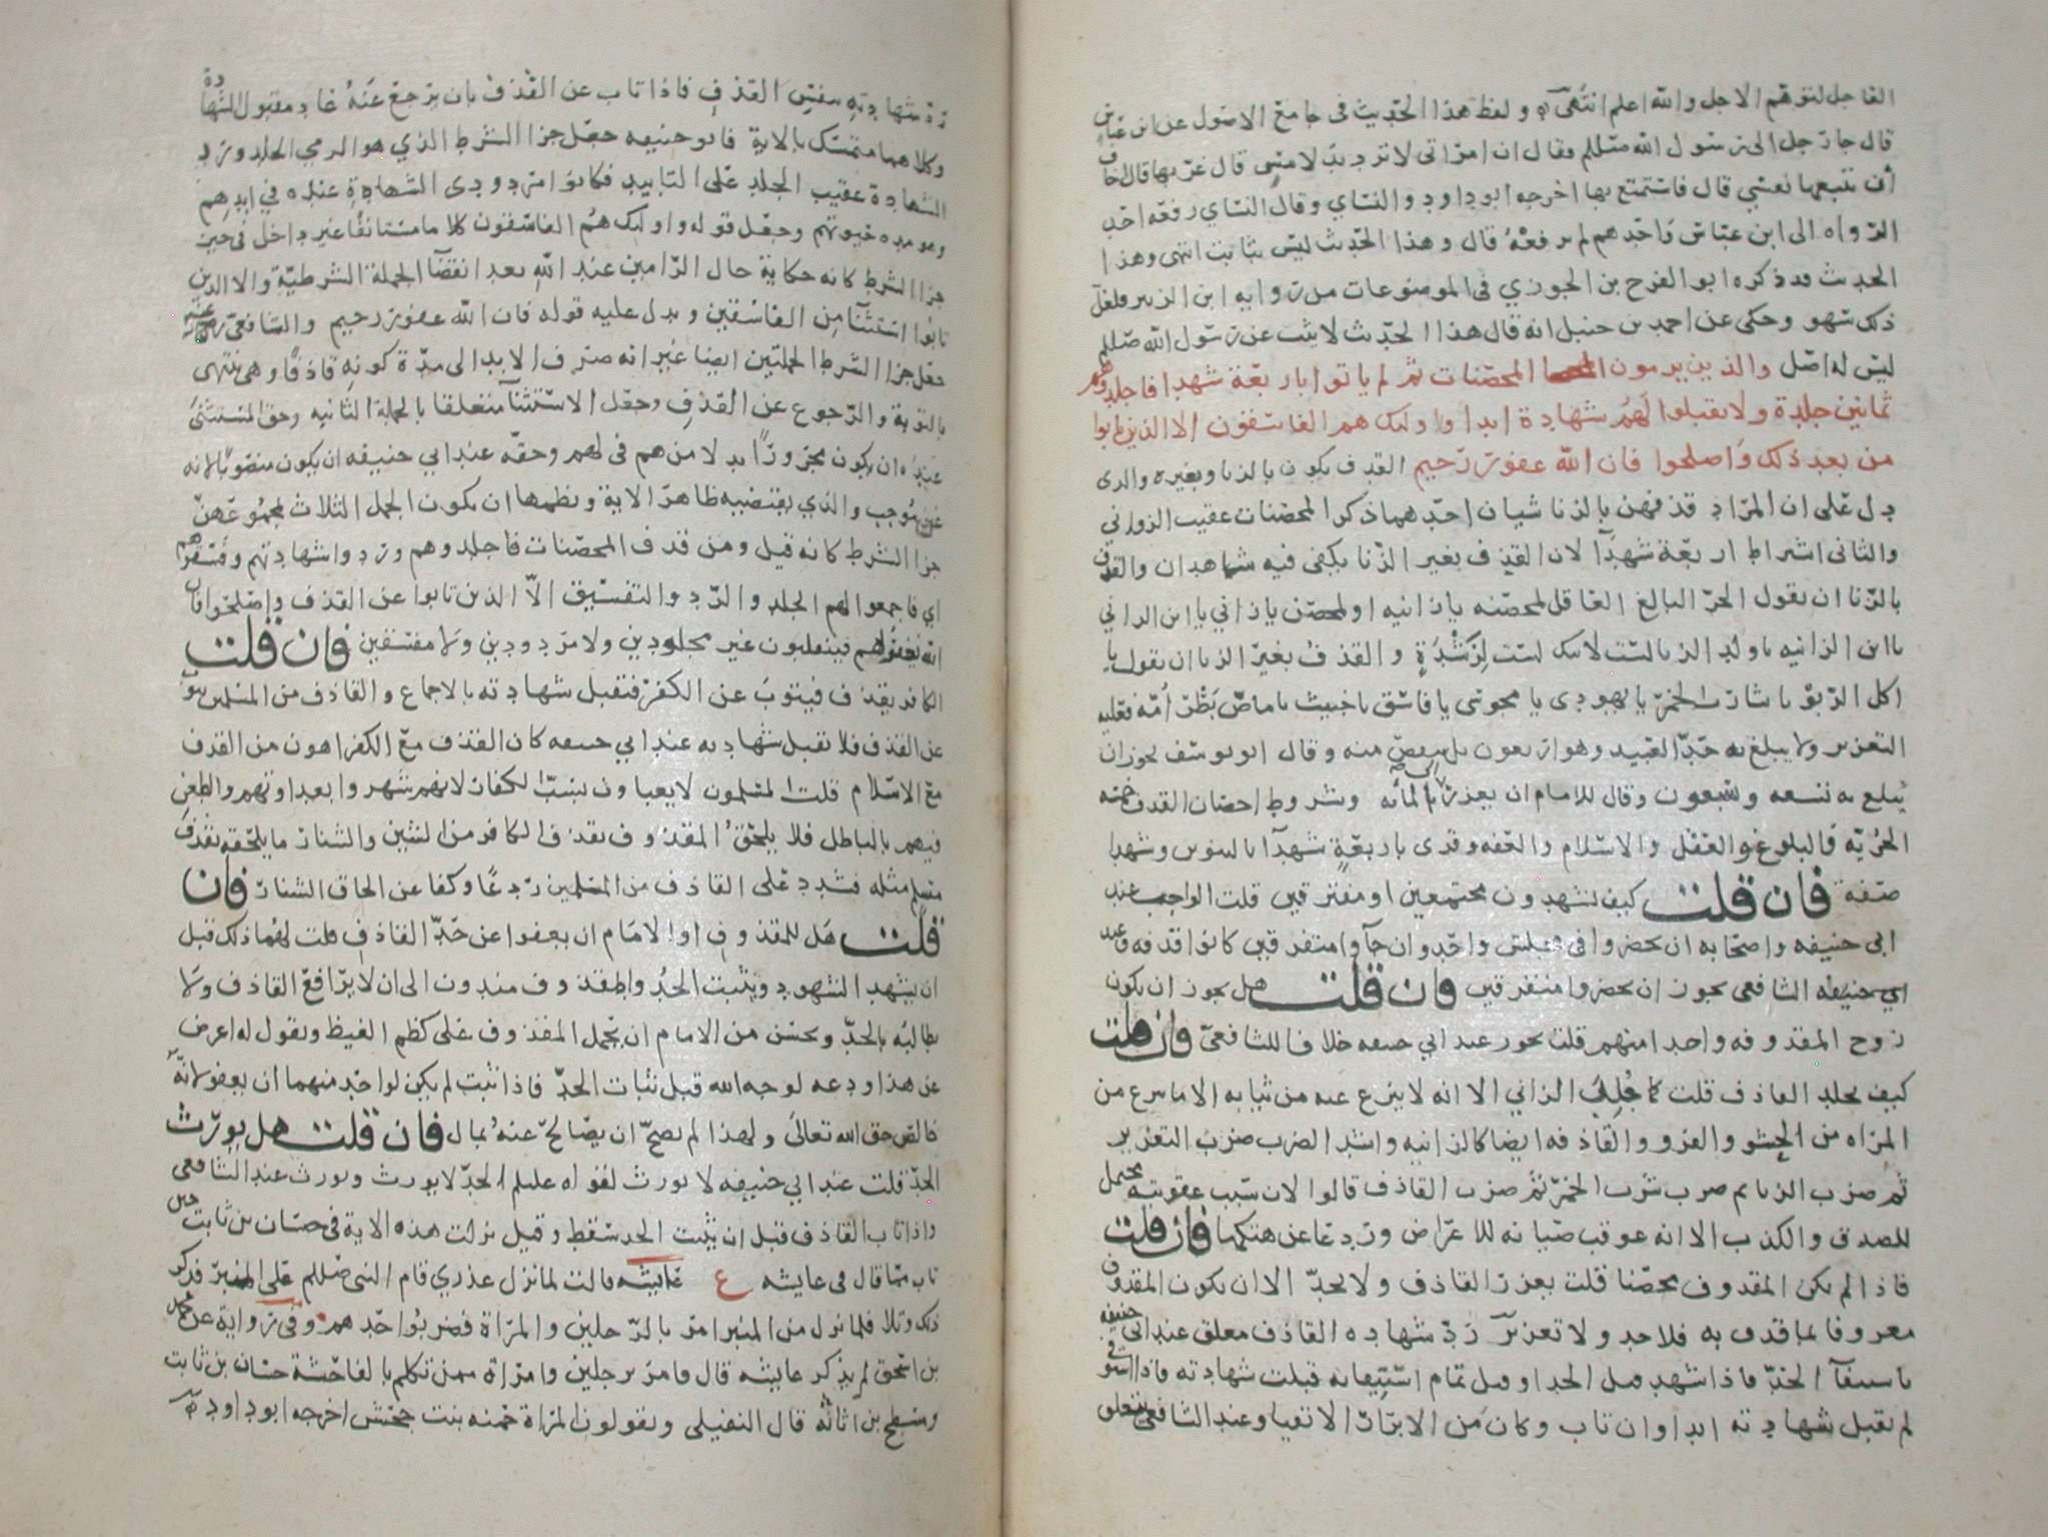 الفاجل لتوهم الاجل والله اعلم انتهى ولفظ هذا الحديث في جامع الاصول عن ابن عباس
قال جا رجل الى رسول الله صللم فقال ان امراتي لا ترد يد لامس قال غربها قال اخاف
أن تتبعها نفسي قال فاستمتع بها اخرجه ابو داود والنساي وقال النساي رفعه احد
الرواه الى ابن عباس واحدهم لم يرفعه قال وهذا الحديث ليس بثابت انتهى وهذا
الحديث قد ذكره ابو الفرج بن الجوزي في الموضوعات من رواية ابن الزبير فلعل
ذلك سهو وحكى عن احمد بن حنبل انه قال هذا الحديث لا يثبت عن رسول الله صللم
ليس له اصل والذين يرمون المحصنات ثم لم ياتوا باربعة شهدا فاجلدوهم
ثمانين جلدة ولا تقبلوا لهم شهادة ابدا واوليك هم الفاسقون الا الذين تابوا
من بعد ذلك واصلحوا فان الله غفور رحيم القذف يكون بالزنا وبغيره والذى
دل على ان المراد قذفهن بالزنا شيان احدهما ذكر المحصنات عقيب الزواني
والثاني اشراط اربعة شهدآ لان القذف بغير الزنا يكفى فيه شاهدان والقذف
بالزنا ان يقول الحر البالغ العاقل لمحصنه يا زانيه او لمحصن يا زاني يا ابن الزاني
يا ابن الزانيه يا ولد الزنا لست لابيك لست لرشدة والقذف بغير الزنا ان يقول يا
اكل الربو يا شارب الخمر يا يهودي يا مجوسي يا فاسق يا خبيث يا ماص بظر أمه فعليه
التعزير ولا يبلغ به حد العبيد وهو اربعون بل ينقص منه وقال ابو يوسف يجوز ان
يبلغ به تسعه وسبعون وقال للامام ان يعزر الى المائه وشروط احصان القذف خمسه
الحريه والبلوغ والعقل والاسلام والعفه وقرى باربعةٍ شهدآ بالتنوين وشهدا
صفة فان قلت كيف يشهدون مجتمعين او مفترقين قلت الواجب عند
ابي حنيفه واصحابه ان يحضروا في مجلس واحد وان جآوا متفرقين كانوا قذفه وعند
الشافعى يجوز ان يحضروا متفرقين فان قلت هل يجوز ان يكون
زوج المقذوفه واحدا منهم قلت يجوز عند ابي حنيفه خلافا للشافعي فان قلت
كيف يجلد القاذف قلت كما جُلِدَ الزاني الا انه لا ينزع عنه من ثيابه الا ما ينزع من
المراه من الحشو والفرو والقاذفه ايضا كالزانيه واشد الضرب ضرب التعزير
ثم ضرب الزنا ثم ضرب شرب الخمر ثم ضرب القاذف قالوا لان سبب عقوبته محتمل
للصدق والكذب الا انه عوقب صيانه للاعراض وردعا عن هتكها فان قلت
فاذا لم يكن المقذوف محصنا قلت يعزر القاذف ولا يحد الا ان يكون المقذوف
معروفا بما قذف به فلا حد ولا تعزير رد شهاده القاذف معلق عند ابي حنيفه
باستيفآ الحد فاذا شهد قبل الحد او قبل تمام استيفائه قبلت شهادته فاذا استوفي
لم تقبل شهادته ابدا وان تاب وكان من الابرار الاتقيا وعند الشافعي يتعلق
رد شهادته بنفس القذف فاذا تاب عن القذف بان يرجع عنه عاد مقبول الشهادة
وكلاهما متمسك بالاية فابو حنيفه جعل جزا الشرط الذي هو الرمي الجلد ورد
الشهادة عقيب الجلد على التابيد فكانوا مردودى الشهادة عنده في ابدهم
وهو مده حيوتهم وجعل قوله واوليك هم الفاسقون كلاما مستانفا غير داخل في حيز
جزا الشرط كانه حكاية حال الرامين عند الله بعد انقضآ الجملة الشرطية والا الذين
تابوا استثنآ من الفاسقين ويدل عليه قوله فان الله غفور رحيم والشافعي
جعل جزا الشرط الجملتين ايضا غير انه صرف الابد الى مدة كونه قاذفا وهي تنتهى
بالتوبة والرجوع عن القذف وجعل الاستثنآ متعلقا بالجملة الثانيه وحق المستثنى
عنده ان يكون مجرورًا بدلا من هم في لهم وحقه عند ابي حنيفه ان يكون منصوبا لانه
عن موجب والذي يقتضيه ظاهر الاية ونظمها ان يكون الجمل الثلاث بمجموعهن
جزا الشرط كانه قيل ومن قذف المحصنات فاجلدوهم وردوا شهادتهم وفسقوهم
اي فاجمعوا لهم الجلد والرد والتفسيق الا الذين تابوا عن القذف واصلحوا فان
الله يغفر لهم فينقلبون غير مجلودين ولا مردودين ولا مفسقين فان قلت
الكافر يقذف فيتوب عن الكفر فتقبل شهادته بالاجماع والقاذف من المسلمين يتوب
عن القذف فلا تقبل شهادته عند ابي حنيفه كان القذف مع الكفر اهون من القذف
مع الاسلام قلت المسلمون لا يعباون بسب الكفار لانهم شهروا بعداوتهم والطعن
فيهم بالباطل فلا يلحق المقذوف بقذف الكافر من الشين والشنار ما يلحقه بقذف
مسلم مثله فشدد على القاذف من المسلمين ردعًا وكفا عن الحاق الشنار فان
قلت هل للمقذوف او للامام ان يعفوا عن حد القاذف قلت لهما ذلك قبل
ان يشهد الشهود ويثبت الحد والمقذوف مندوب الى ان لا يرافع القاذف ولا
يطالبه بالحد ويحسن من الامام ان يحمل المقذوف على كظم الغيظ ويقول له اعرض
عن هذا ودعه لوجه الله قبل ثبات الحد فاذا ثبت لم يكن لواحد منهما ان يعفو لانه
خالص حق الله تعالى ولهذا لم يصح ان يصالح عنه بمال فان قلت هل يورث
الحد قلت عند ابي حنيفه لا يورث لقوله عليلم الحد لا يورث ويورث عند الشافعي
واذا تاب القاذف قبل ان يثبت الحد سقط وقيل نزلت هذه الاية في حسان بن ثابت حين
تاب مما قال في عايشه ع عايشه قالت لما نزل عذري قام النبي صللم على المنبر فذكر
ذلك وتلا فلما نزل من المنبر امر بالرجلين والمراة فضربوا حدهم وفي رواية عن محمد
بن اسحق لم يذكر عايشه قال وامر برجلين وامراة ممن تكلم بالفاحشة حسان بن ثابت
ومسطح بن اثاثه قال النفيلي ويقولون المراة حمنه بنت جحش اخرجه ابو داود